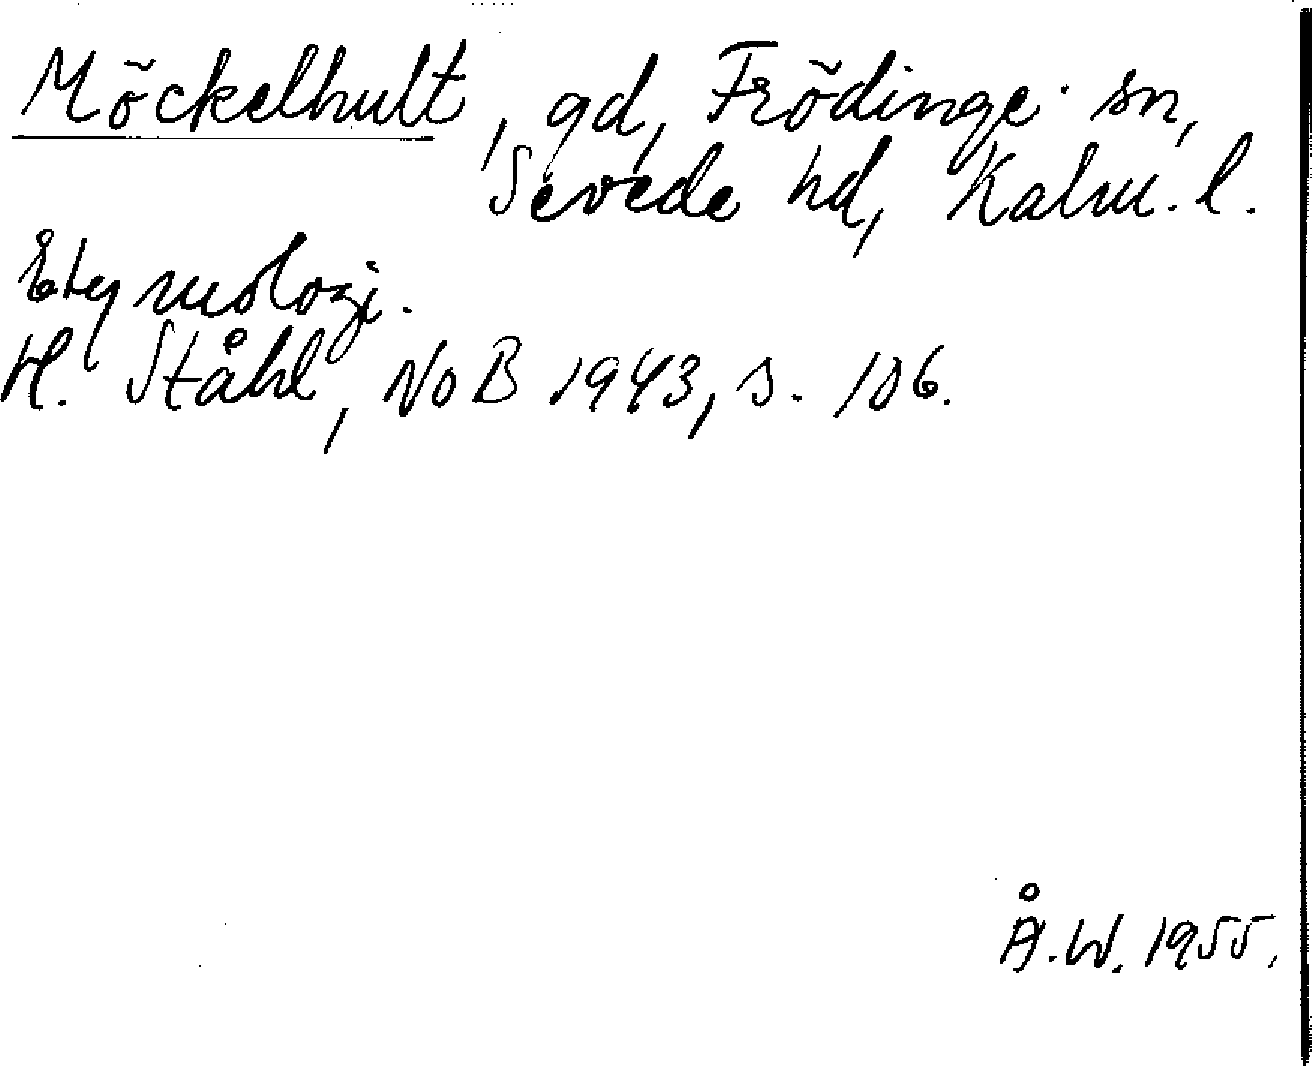 Möckelhult, gd, Frödinge sn,
Sevede hd, Kalm. l.
Etymologi.
H. Ståhl, NoB 1943, s. 106.
Å.W. 1955.